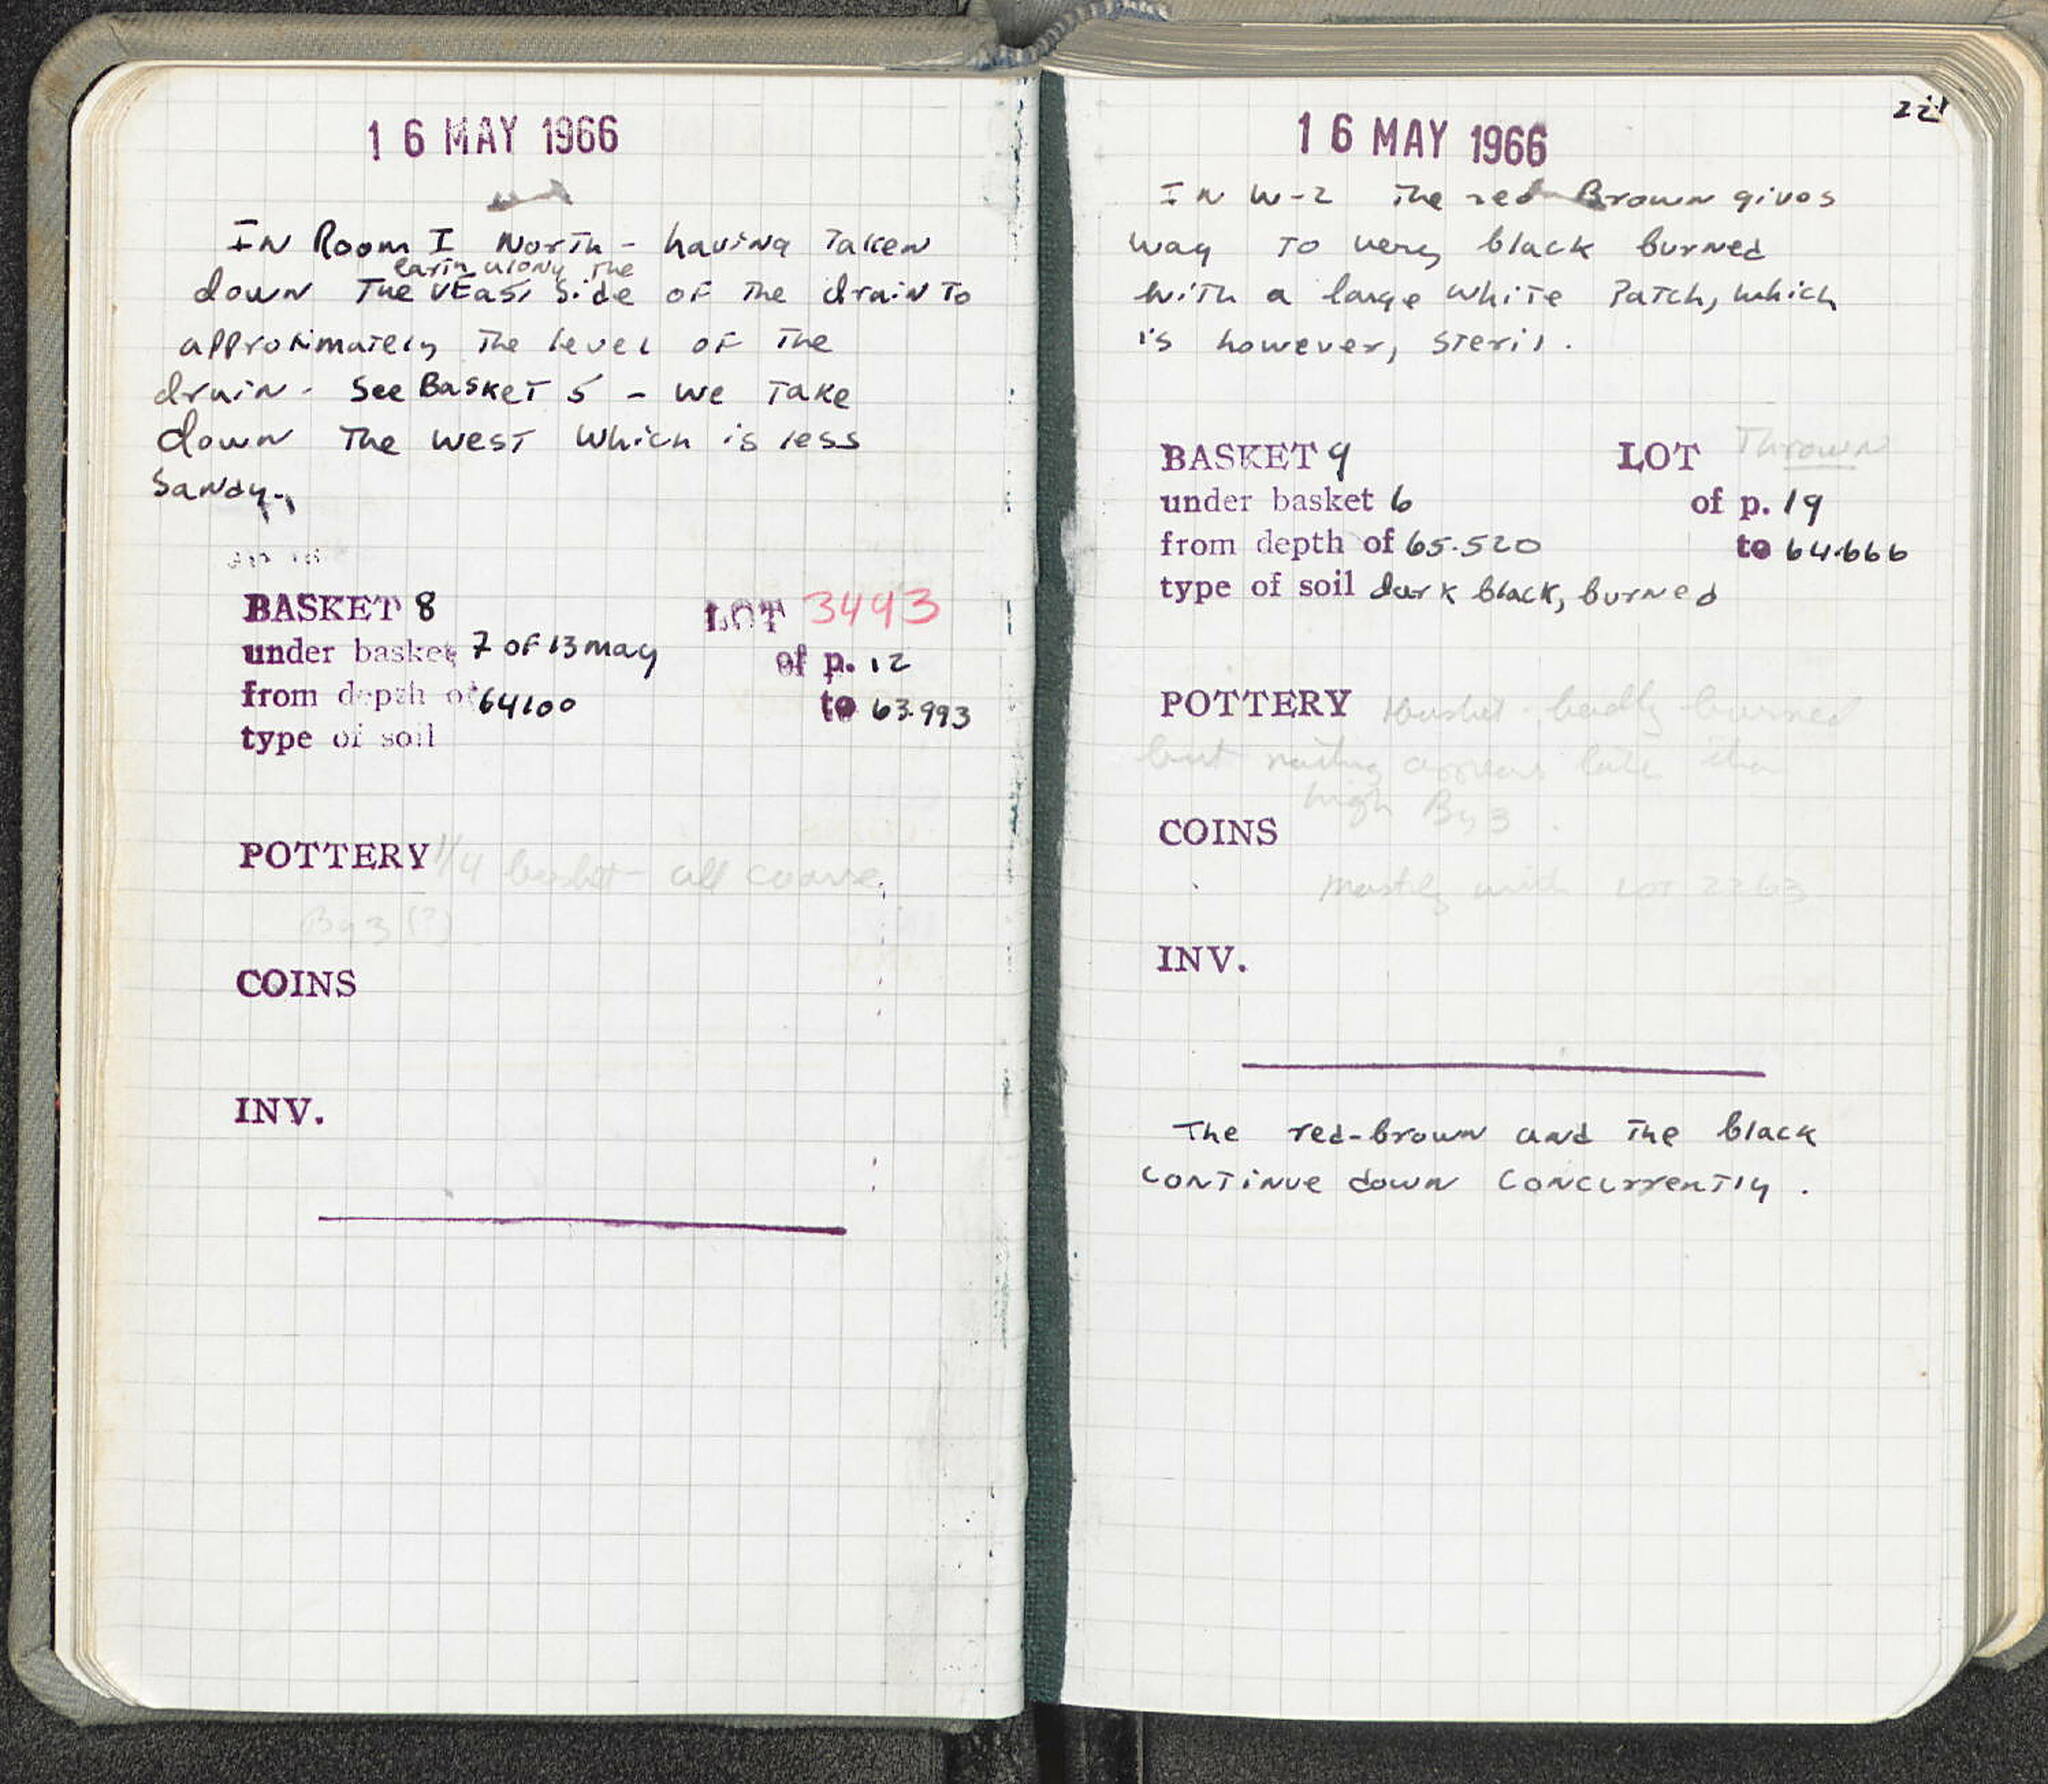 16 MAY 1966
In Room I North - having Taken
earth along the
down The East Side of The drain To
approximately The level of The
drain - See Basket 5 - we Take
down The West Which is less
Sandy.
BASKET 8 LOT 3493
under basket 7 of 13 May of p. 12
from depth of 64100 to 63.993
type of soil
POTTERY 1/4 basket - all coarse
By 3 (?)
COINS
INV.
22
16 MAY 1966
In W-2 The red-Brown gives
way To very black burned
With a large White Patch, which
is however, Steril.
BASKET 9 LOT Thrown
under basket 6 of p. 19
from depth of 65.520 to 64.666
type of soil dark black, burned
POTTERY basket - badly burned
but nothing appears later than
high By 3.
COINS
mostly with Lot 2263
INV.
The red-brown and The black
continue down concurrently.